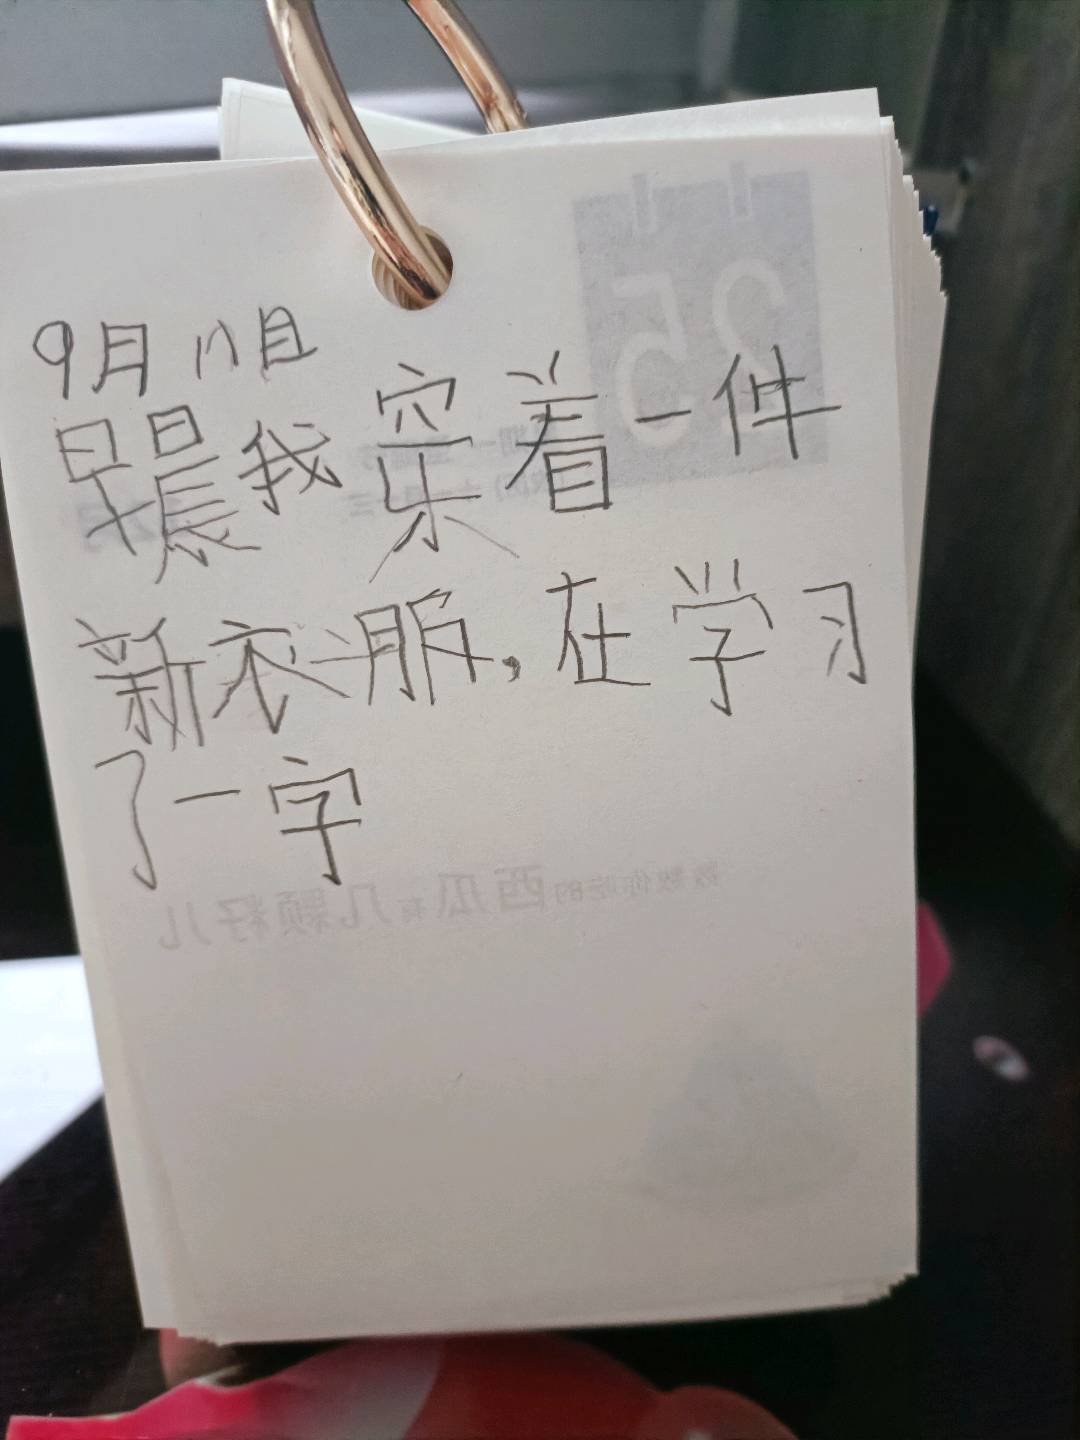 9月11日
早晨我穿着一件
新衣服,在学习
了一字
25
数数你吃的西瓜有几颗籽儿